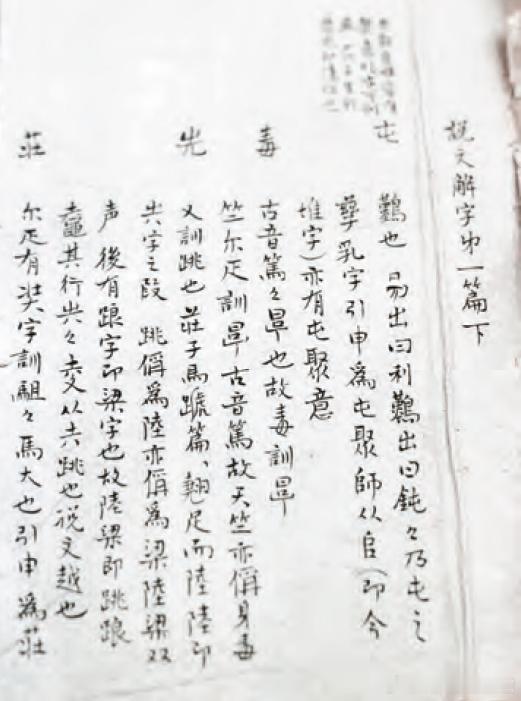 説文解字弟一篇下
屯
難也 易出曰利難出曰鈍々乃屯之
孳乳字引申爲屯聚師从𠂤(即今
堆字)亦有屯聚意
毒
古音篤々㫗也故毒訓㫗
竺尔疋訓㫗古音篤故天竺亦偁身毒
圥
又訓跳也莊子馬蹏篇、翹足而陸陸即
圥字之叚 跳偁爲陸亦偁爲梁陸梁双
声 後有踉字即梁字也故陸梁即跳踉
鼀其行圥々夌从圥跳也説文越也
莊
尔疋有奘字訓駔々馬大也引申爲莊